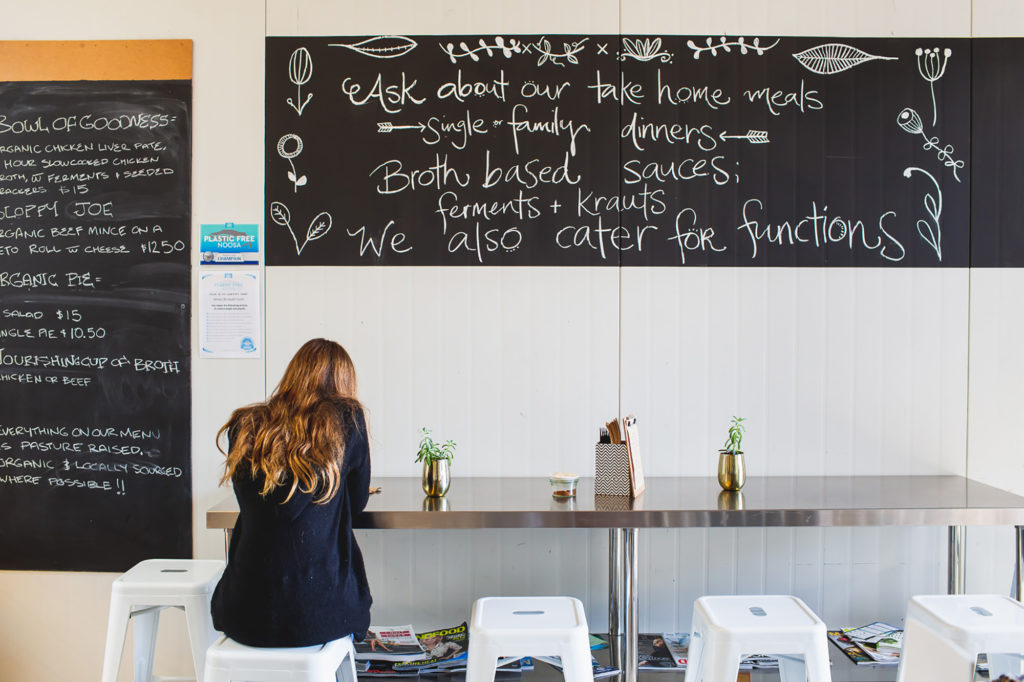 BOWL OF GOODNESS=
ORGANIC CHICKEN LIVER PATE,
HOUR SLOWCOOKED CHICKEN
BROTH, W FERMENTS + SEEDED
CRACKERS $15
SLOPPY JOE
ORGANIC BEEF MINCE ON A
KETO ROLL W CHEESE $12.50
ORGANIC PIE=
SALAD $15
SINGLE PIE $10.50
NOURISHING CUP OF BROTH
CHICKEN OR BEEF
EVERYTHING ON OUR MENU
IS PASTURE RAISED,
ORGANIC & LOCALLY SOURCED
WHERE POSSIBLE!!
PLASTIC FREE
NOOSA
CHAMPION
Ask about our take home meals
Single or family dinners
Broth based sauces;
ferments + krauts
We also cater for functions